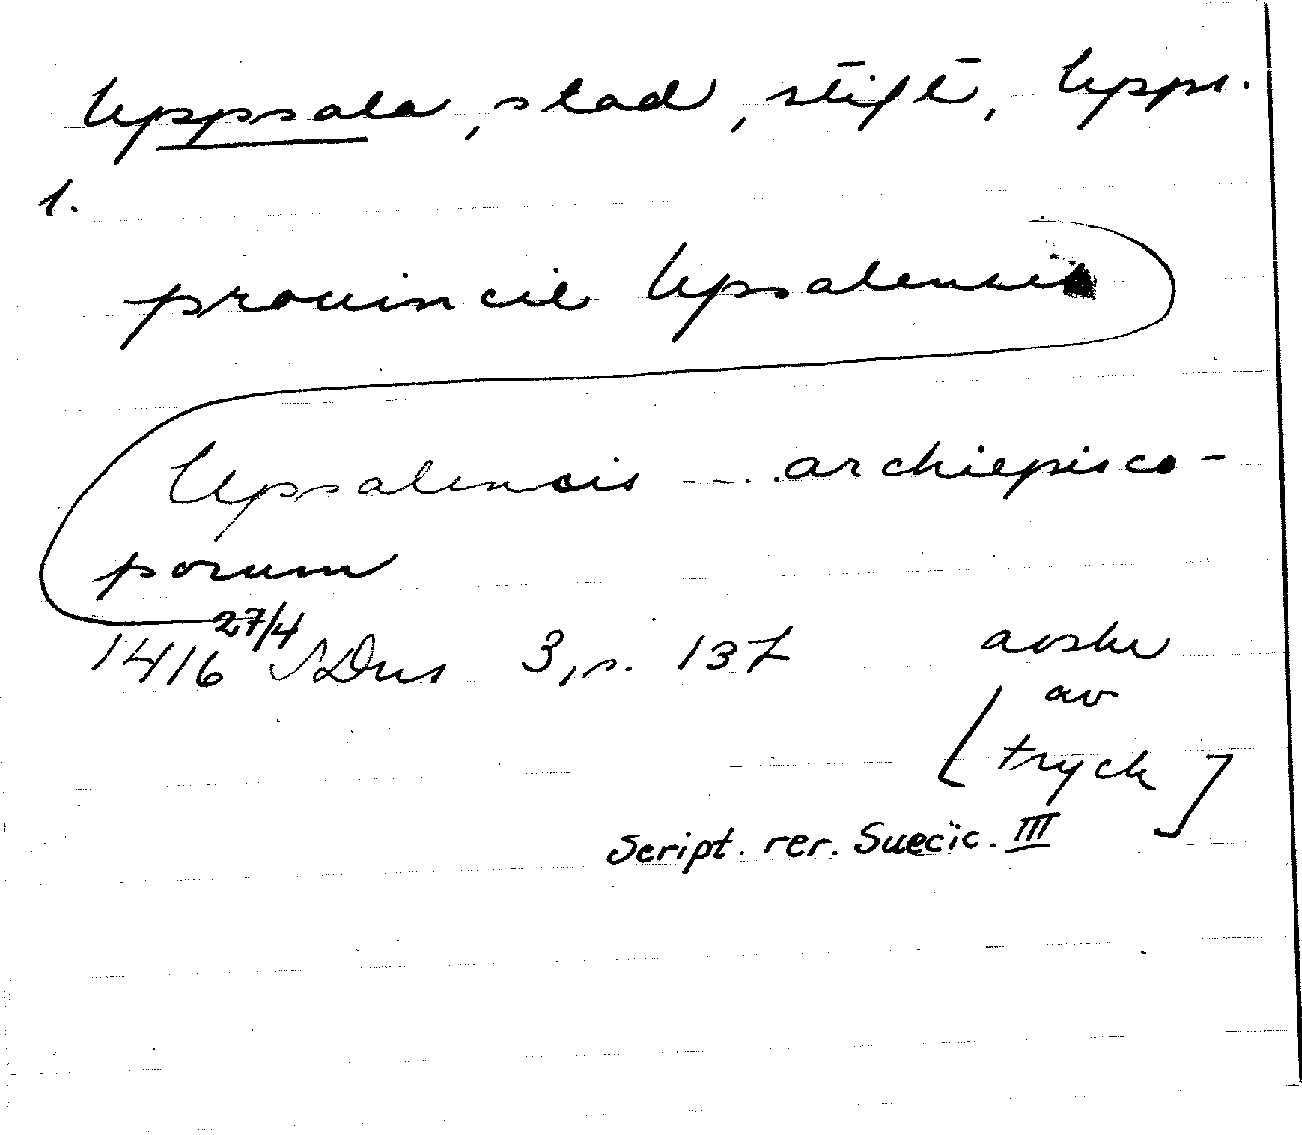 Uppsala, stad, stift, Uppl.
1.
prouincie Upsalensis
Upsalensis --.. archiepisco-
porum
1416 27/4 SDns 3, s. 137 avskr
av
[tryck]
Script. rer. Suecic. III